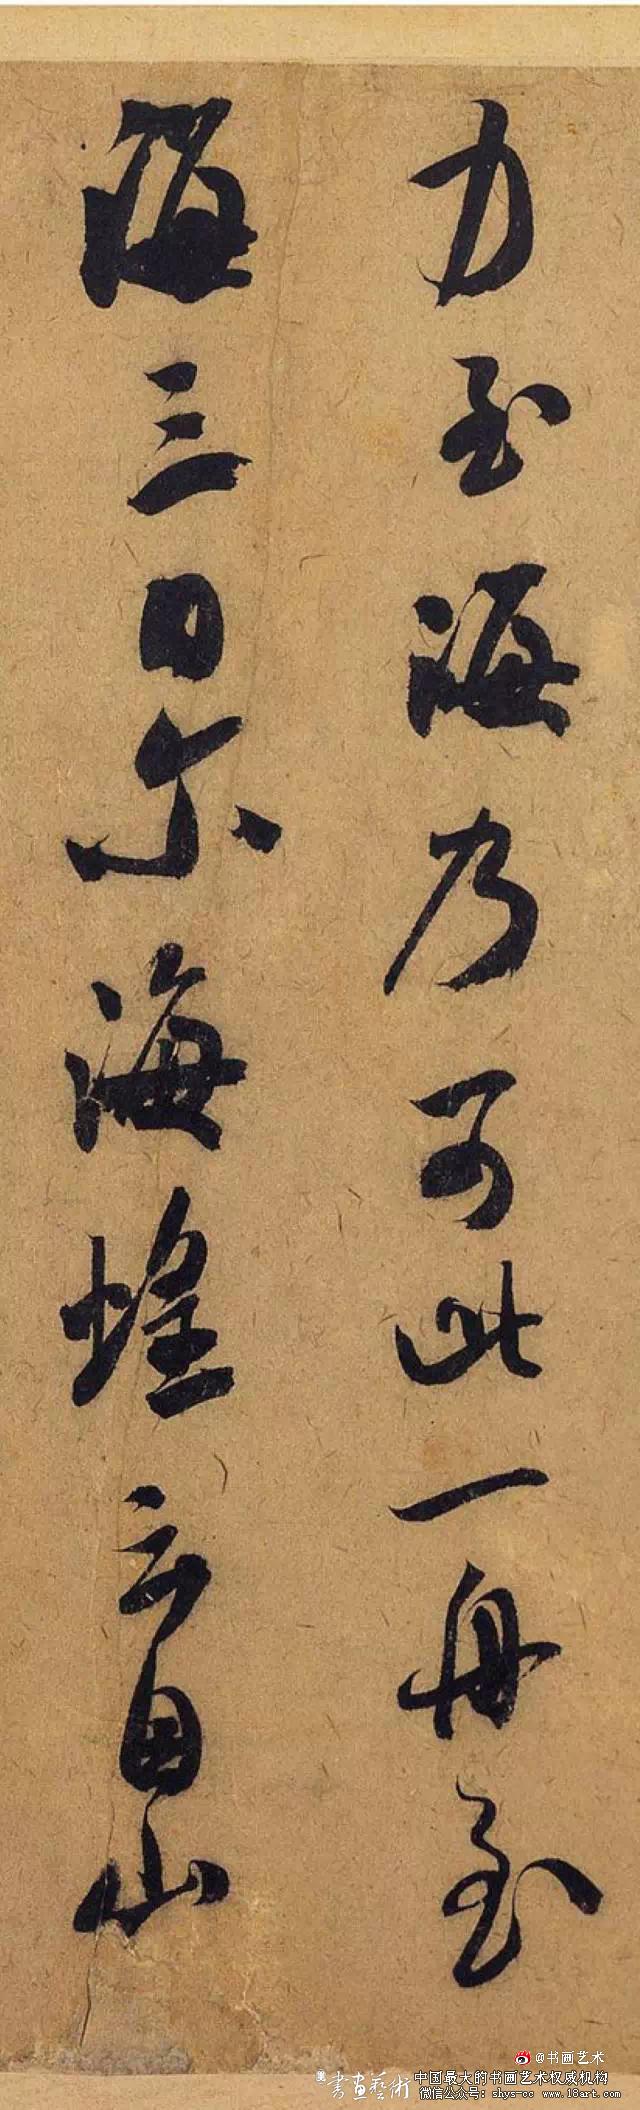 力至海乃可此一舟至
海三日尔海蝗云自山
@书画艺术
書畫藝術 中国最大的书画艺术权威机构
微信公众号：shys-cc www.18art.com